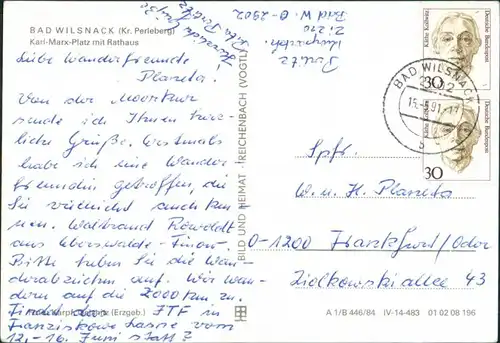 BAD WILSNACK (Kr. Perleberg)
Karl-Marx-Platz mit Rathaus
Liebe Wanderfreunde
Planeta.
Von der Moorkur
sende ich Ihnen herz-
liche Grüße. Erstmals
habe ich eine Wander-
freundin getroffen, die
Sie vielleicht auch ken-
nen. Waltraud
aus Eberswalde-Finow.
Bitte heben Sie die Wan-
derabzeichen auf. Wir wan-
dern auf die 2000 km zu.
Findet das JTF in
vom
12.-16. Juni statt?
(Erzgeb.)
Zi 270
Bad W. O-2902
BILD UND HEIMAT · REICHENBACH (VOGTL)
Käthe Kollwitz
Deutsche Bundespost
30
Käthe Kollwitz
Deutsche Bundespost
30
BAD WILSNACK
15.-5.91.-11
b
Spfr.
W. u. H. Planeta
O-1200 Frankfurt/Oder
Ziolkowskiallee 43
A 1/B 446/84 IV-14-483 01 02 08 196